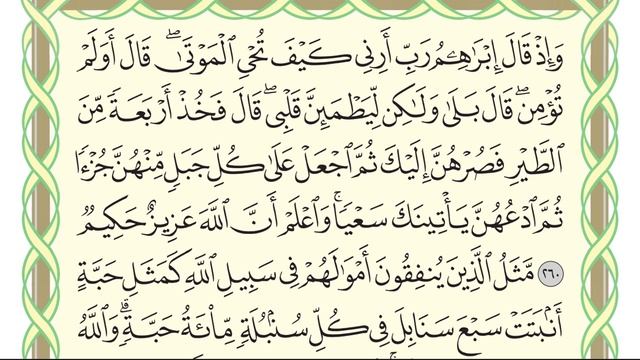 وَإِذۡ قَالَ إِبۡرَٰهِـۧمُ رَبِّ أَرِنِي كَيۡفَ تُحۡيِ ٱلۡمَوۡتَىٰۖ قَالَ أَوَلَمۡ
تُؤۡمِنۖ قَالَ بَلَىٰ وَلَٰكِن لِّيَطۡمَئِنَّ قَلۡبِيۖ قَالَ فَخُذۡ أَرۡبَعَةٗ مِّنَ
ٱلطَّيۡرِ فَصُرۡهُنَّ إِلَيۡكَ ثُمَّ ٱجۡعَلۡ عَلَىٰ كُلِّ جَبَلٖ مِّنۡهُنَّ جُزۡءٗا
ثُمَّ ٱدۡعُهُنَّ يَأۡتِينَكَ سَعۡيٗاۚ وَٱعۡلَمۡ أَنَّ ٱللَّهَ عَزِيزٌ حَكِيمٞ
٢٦٠ مَّثَلُ ٱلَّذِينَ يُنفِقُونَ أَمۡوَٰلَهُمۡ فِي سَبِيلِ ٱللَّهِ كَمَثَلِ حَبَّةٍ
أَنۢبَتَتۡ سَبۡعَ سَنَابِلَ فِي كُلِّ سُنۢبُلَةٖ مِّاْئَةُ حَبَّةٖۗ وَٱللَّهُ